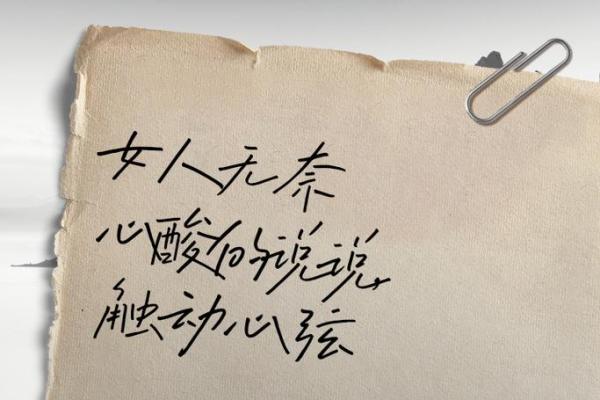 女人无奈
心酸的说说,
触动心弦